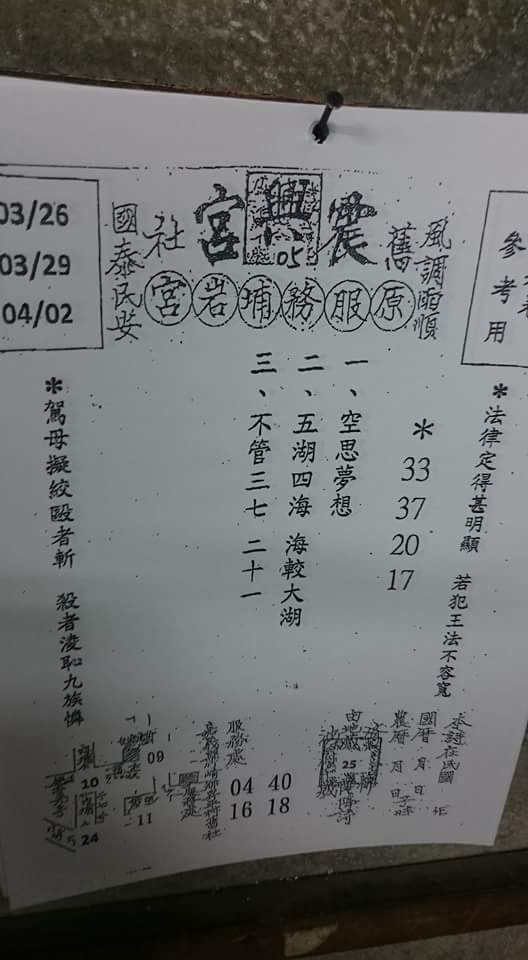 03/26
03/29
04/02
參考用
風調雨順
舊
震興宮
05
社
國泰民安
原服務埔岩宮
*法律定得甚明顯 若犯王法不容寬
*
33
37
20
17
一、空思夢想
二、五湖四海 海較大湖
三、不管三七 二十一
*駕母擬絞毆者斬 殺者凌恥九族憐
國曆 月 日
農曆 月 日 子時
25
服務處
04 40
16 18
09
10
11
24